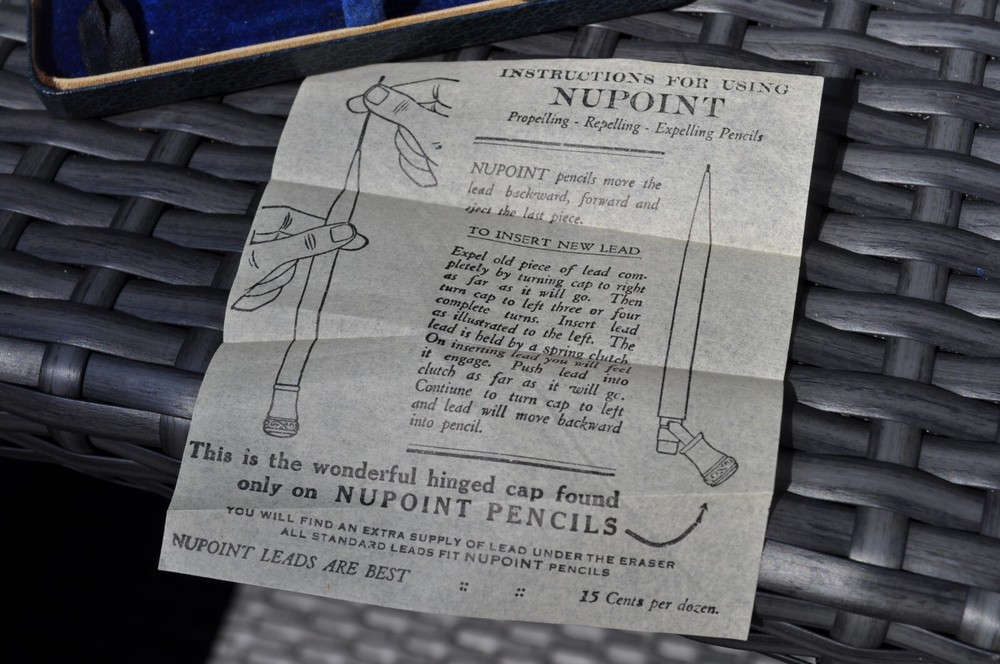 INSTRUCTIONS FOR USING
NUPOINT
Propelling - Repelling - Expelling Pencils
NUPOINT pencils move the
lead backward, forward and
eject the last piece.
TO INSERT NEW LEAD
Expel old piece of lead com-
pletely by turning cap to right
as far as it will go. Then
turn cap to left three or four
complete turns. Insert lead
as illustrated to the left. The
lead is held by a spring clutch.
On inserting lead you will feel
it engage. Push lead into
clutch as far as it will go.
Contiune to turn cap to left
and lead will move backward
into pencil.
This is the wonderful hinged cap found
only on NUPOINT PENCILS
YOU WILL FIND AN EXTRA SUPPLY OF LEAD UNDER THE ERASER
ALL STANDARD LEADS FIT NUPOINT PENCILS
NUPOINT LEADS ARE BEST :: :: 15 Cents per dozen.